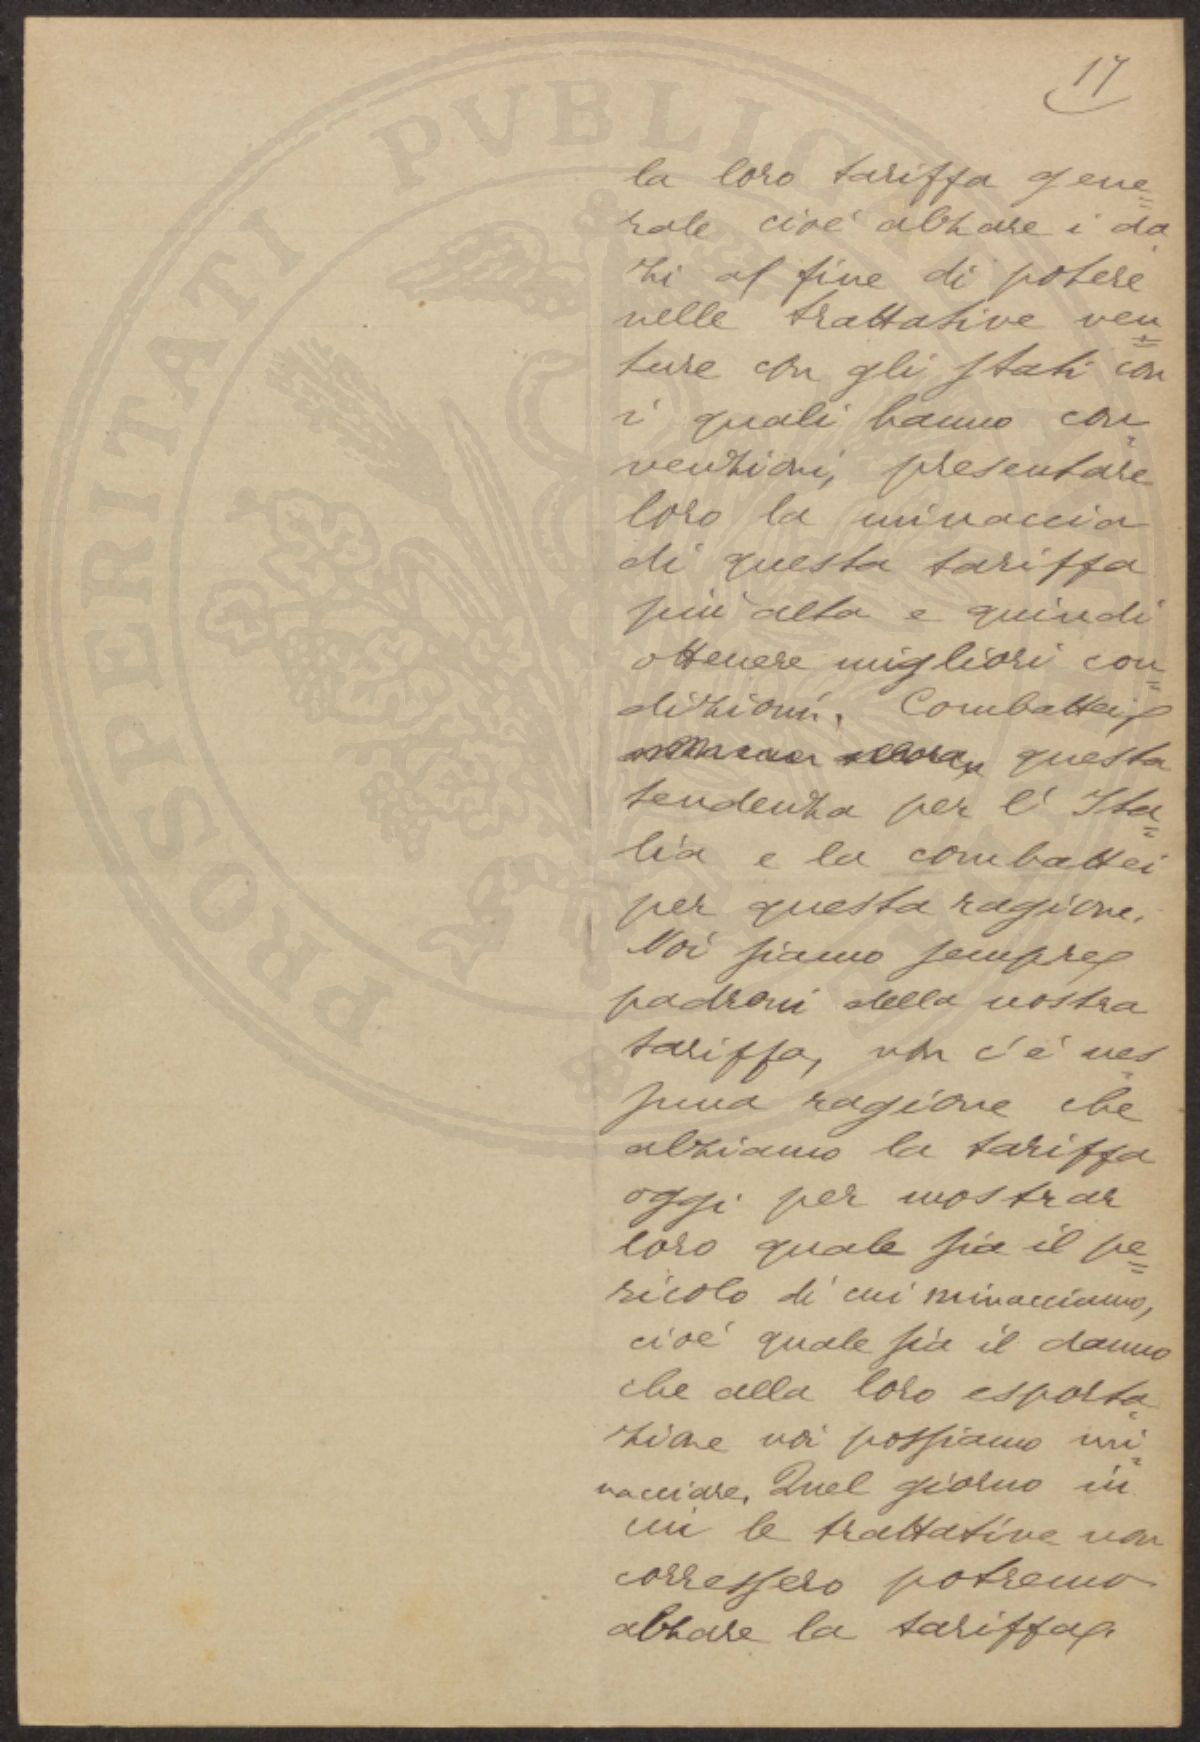 17
la loro tariffa gene=
rale cioè alzare i da
zi al fine di potere
nelle trattative ven=
ture con gli stati con
i quali hanno con
venzioni, presentare
loro la minaccia
di questa tariffa
più alta e quindi
ottenere migliori con=
dizioni. Combattei
allora questa
tendenza per l' Ita=
lia e la combattei
per questa ragione.
Noi siamo sempre
padroni della nostra
tariffa, non c'è nes
suna ragione che
alziamo la tariffa
oggi per mostrar
loro quale sia il pe=
ricolo di cui minacciamo,
cioè quale sia il danno
che alla loro esporta
zione noi possiamo mi
nacciare. Quel giorno in
cui le trattative non
corressero potremo
alzare la tariffa.
PROSPERITATI PVBLIC